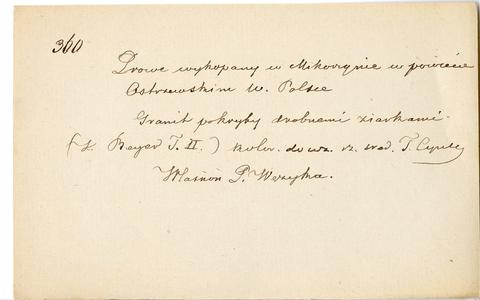 360
Drowe wykopany w Mikorzynie w powiecie
Ostrzewskim W. Polsce
Granit pokryty drobnemi ziarkami.
( K. Beyer T. II. ) kolor. do wz. rz. T.
Własnoś P. Wężyka.